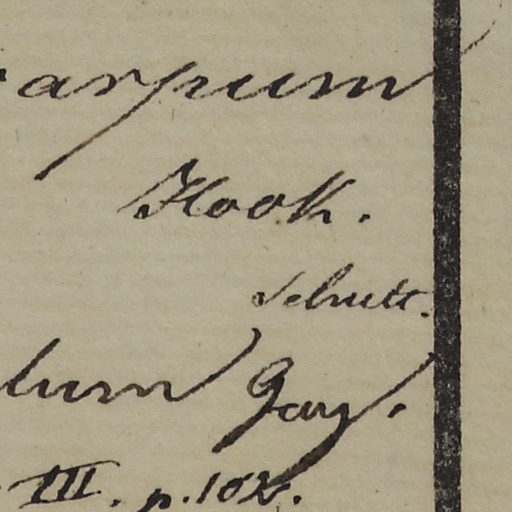 arpum
Hook.
Schult.
lum Gay.
III. p. 182.